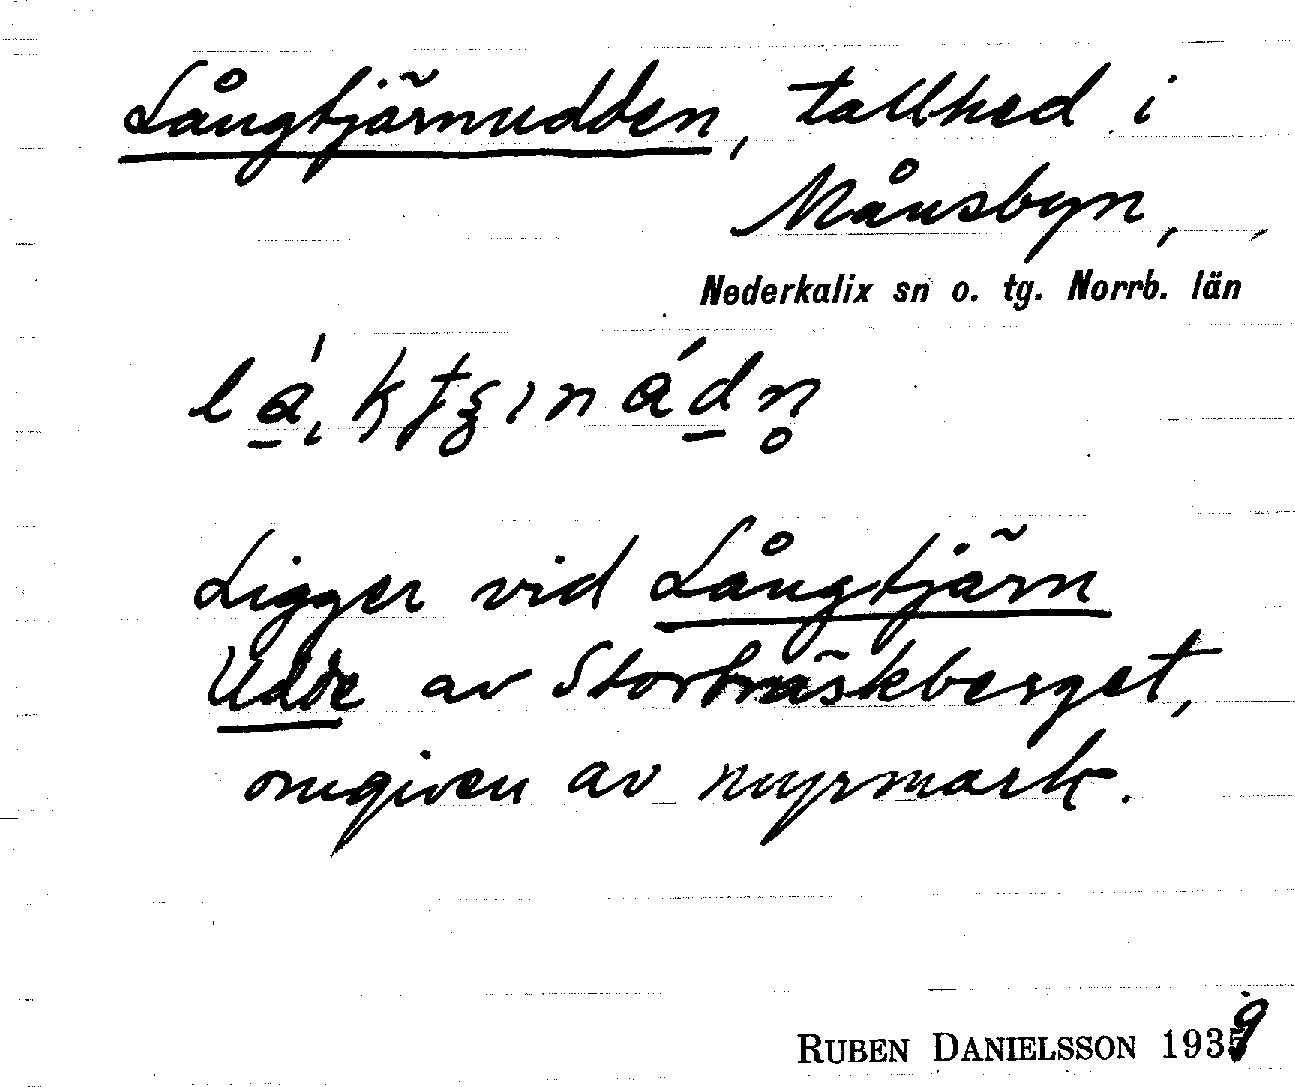 Långtjärnudden, tallhed i
Månsbyn,
Nederkalix sn o. tg. Norrb. län
Ligger vid Långtjärn
Udde av Storträskberget,
omgiven av myrmark.
RUBEN DANIELSSON 1939